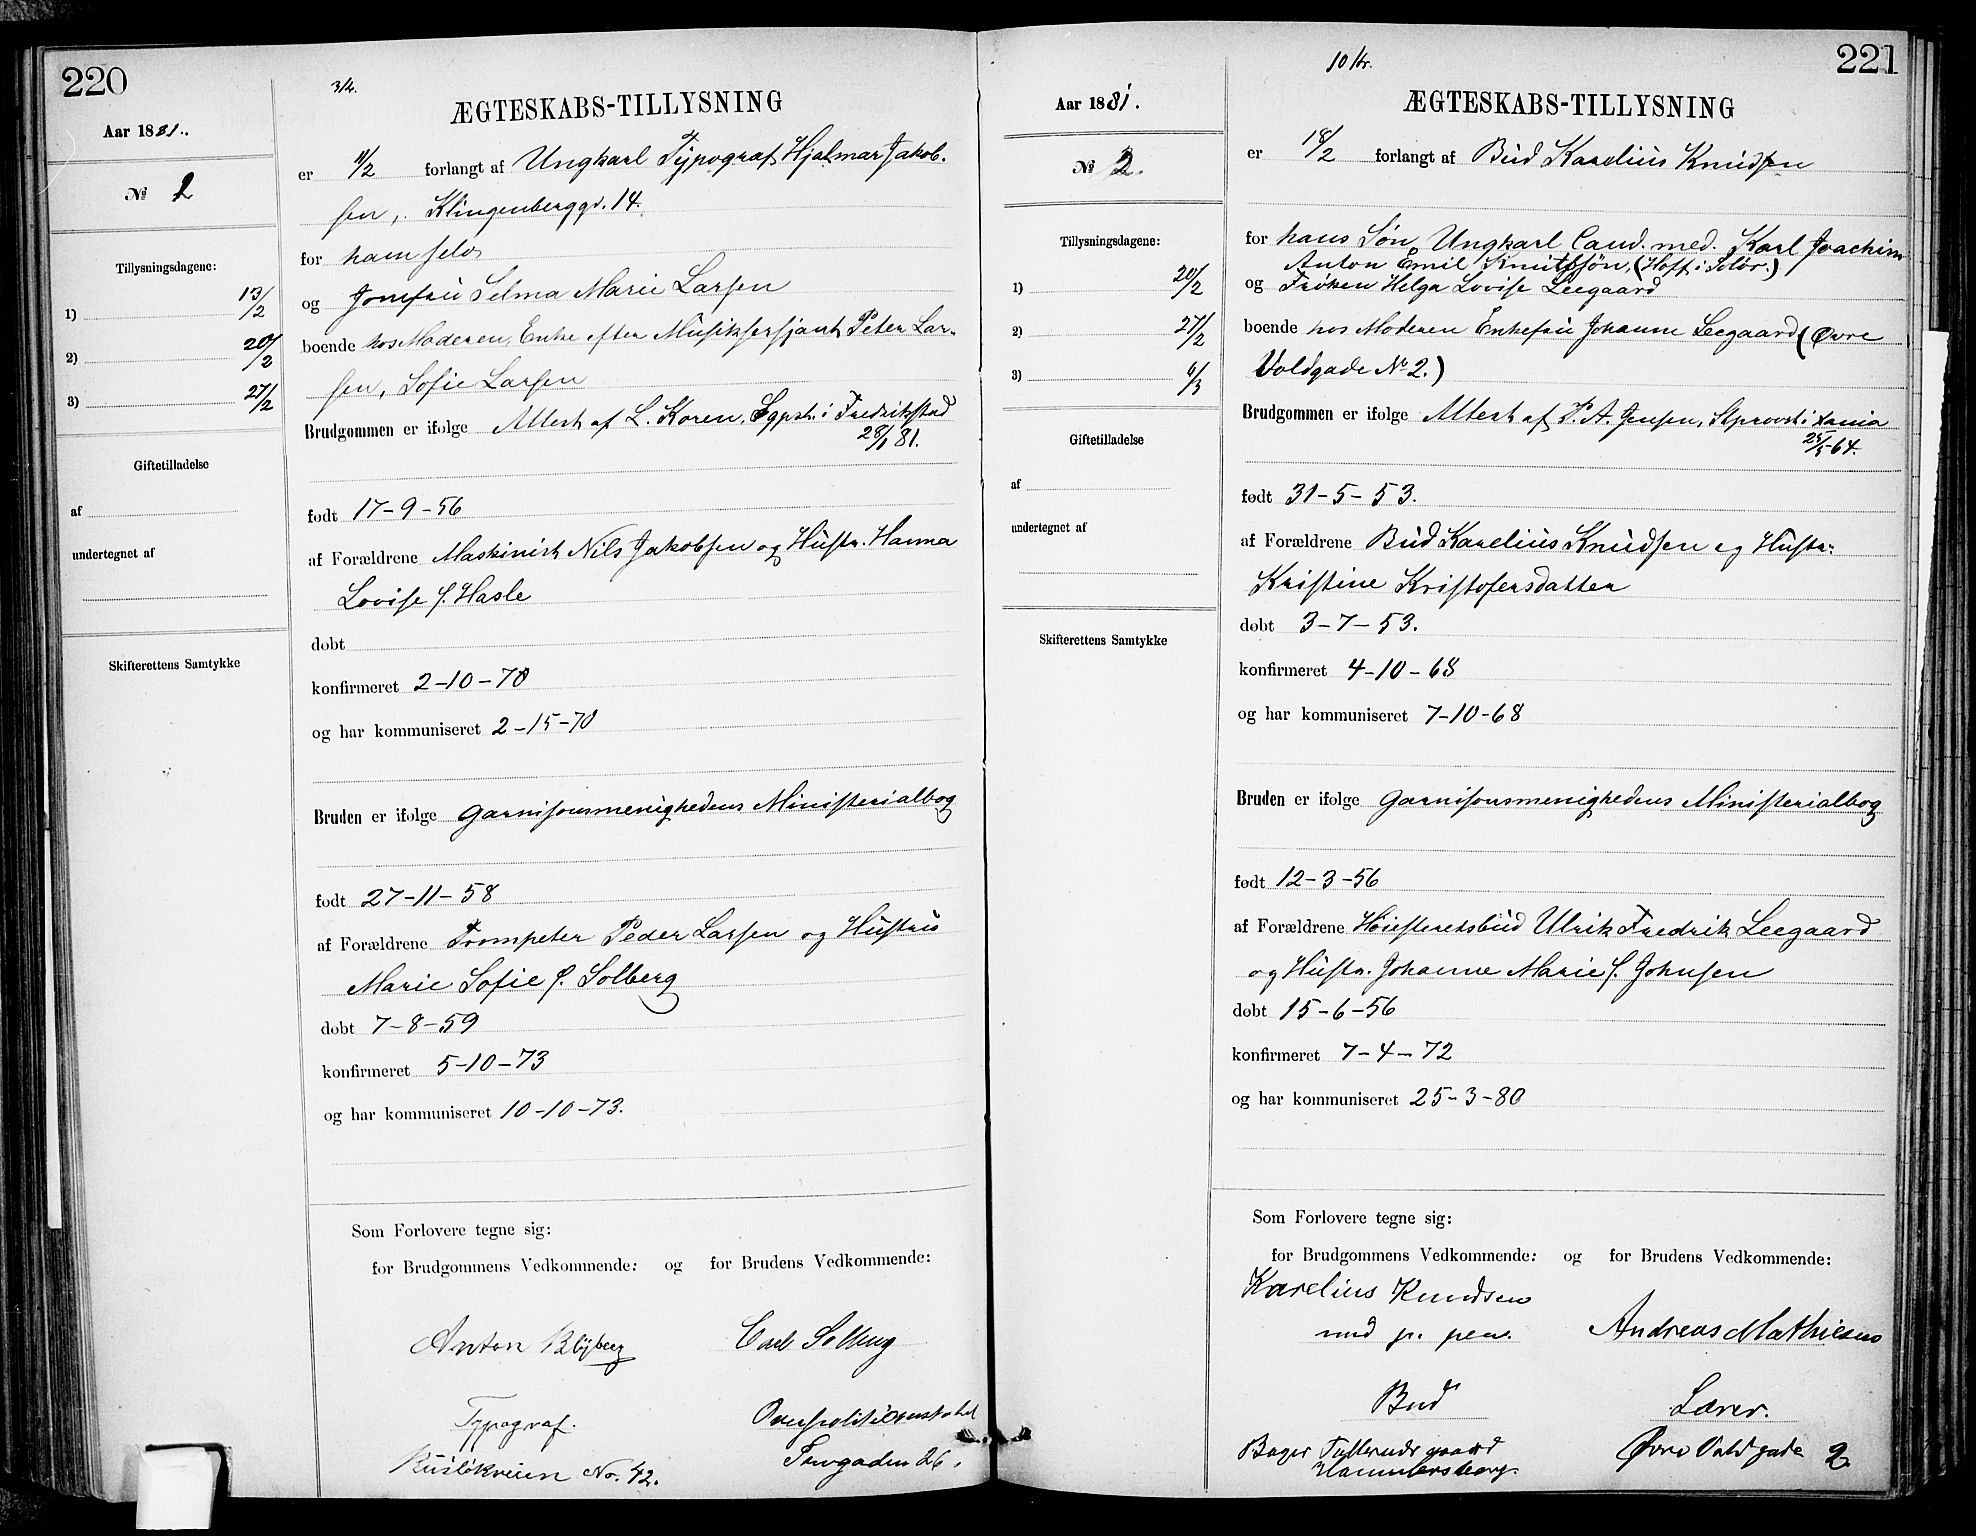 220
3 kr.
ÆGTESKABS-TILLYSNING
Aar 1881.
№ 2
Tillysningsdagene:
1) 13/2
2) 20/2
3) 27/2
Giftetilladelse
af
undertegnet af
Skifterettens Samtykke
er 11/2 forlangt af Ungkarl Typograf Hjalmar Jakob-
sen, Klingenberggd. 14.
for ham selv
og Jomfru Selma Marie Larsen
boende hos Moderen, Enke efter Musiksersjant Peter Lar-
sen, Sofie Larsen
Brudgommen er ifølge Attest af L. Koren, Sgpst. i Fredrikstad
28/1 81.
født 17-9-56
af Forældrene Maskinist Nils Jakobsen og Hustr. Hanna
Lovise f. Hasle
døbt
konfirmeret 2-10-70
og har kommuniseret 2-15-70
Bruden er ifølge Garnisonsmenighedens Ministerialbog
født 27-11-58
af Forældrene Trompeter Peder Larsen og Hustru
Marie Sofie f. Solberg
døbt 7-8-59
konfirmeret 5-10-73
og har kommuniseret 10-10-73.
Som Forlovere tegne sig:
for Brudgommens Vedkommende: og for Brudens Vedkommende:
Anton Blÿberg Carl Solberg
Typograf. Overpolitikonstabel
Rusløkveien No. 42. 26.
221
10 kr.
ÆGTESKABS-TILLYSNING
Aar 1881.
№ 2.
Tillysningsdagene:
1) 20/2
2) 27/2
3) 6/3
Giftetilladelse
af
undertegnet af
Skifterettens Samtykke
er 18/2 forlangt af Bud Karelius Knudsen
for hans Søn, Ungkarl Cand. med. Karl Joachim
Anton Emil Knutssøn, (Hoff i Solør.)
og Frøken Helga Lovise Leegaard
boende hos Moderen Enkefru Johanne Leegaard (Øvre
Voldgade № 2.)
Brudgommen er ifølge Attest af P. A. Jensen, Stprovst i Xania
25/5-64.
født 31-5-53.
af Forældrene Bud Karelius Knudsen og Hustr.
Kristine Kristofersdatter
døbt 3-7-53.
konfirmeret 4-10-68
og har kommuniseret 7-10-68
Bruden er ifølge Garnisonsmenighedens Ministerialbog
født 12-3-56
af Forældrene Høiesteretsbud Ulrik Fredrik Leegaard
og Hustr. Johanne Marie f. Johnsen
døbt 15-6-56
konfirmeret 7-4-72
og har kommuniseret 25-3-80
Som Forlovere tegne sig:
for Brudgommens Vedkommende: og for Brudens Vedkommende:
Karelius Knudsen
med p. pen. Andreas Mathiesen
Bud Lærer.
Bager gaard Øvre Voldgade 2
Hammersborg.